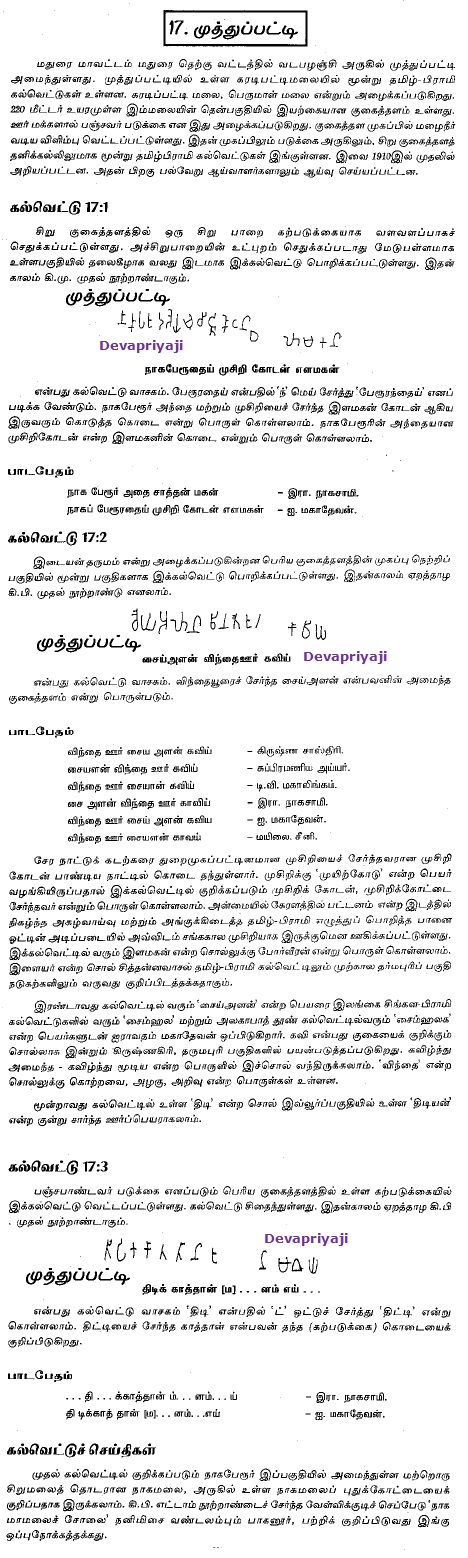 17. முத்துப்பட்டி
மதுரை மாவட்டம் மதுரை தெற்கு வட்டத்தில் வடபழஞ்சி அருகில் முத்துப்பட்டி
அமைந்துள்ளது. முத்துப்பட்டியில் உள்ள கரடிபட்டிமலையில் மூன்று தமிழ்-பிராமி
கல்வெட்டுகள் உள்ளன. கரடிப்பட்டி மலை, பெருமாள் மலை என்றும் அழைக்கப்படுகிறது.
220 மீட்டர் உயரமுள்ள இம்மலையின் தென்பகுதியில் இயற்கையான குகைத்தளம் உள்ளது.
ஊர் மக்களால் பஞ்சவர் படுக்கை என இது அழைக்கப்படுகிறது. குகைத்தள முகப்பில் மழைநீர்
வடிய விளிம்பு வெட்டப்பட்டுள்ளது. இதன் முகப்பிலும் படுக்கை அருகிலும், சிறு குகைத்தளத்
தனிக்கல்லிலுமாக மூன்று தமிழ்பிராமி கல்வெட்டுகள் இங்குள்ளன. இவை 1910இல் முதலில்
அறியப்பட்டன. அதன் பிறகு பல்வேறு ஆய்வாளர்களாலும் ஆய்வு செய்யப்பட்டன.
கல்வெட்டு 17:1
சிறு குகைத்தளத்தில் ஒரு சிறு பாறை கற்படுக்கையாக வளவளப்பாகச்
செதுக்கப்பட்டுள்ளது. அச்சிறுபாறையின் உட்புறம் செதுக்கப்படாது மேடுபள்ளமாக
உள்ளபகுதியில் தலைகீழாக வலது இடமாக இக்கல்வெட்டு பொறிக்கப்பட்டுள்ளது. இதன்
காலம் கி.மு. முதல் நூற்றாண்டாகும்.
முத்துப்பட்டி
Devapriyaji
நாகபேரூதைய் முசிறி கோடன் எளமகன்
என்பது கல்வெட்டு வாசகம். பேரூரதைய் என்பதில் 'ந்' மெய் சேர்த்து 'பேரூரந்தைய்' எனப்
படிக்க வேண்டும். நாகபேரூர் அந்தை மற்றும் முசிறியைச் சேர்ந்த இளமகன் கோடன் ஆகிய
இருவரும் கொடுத்த கொடை என்று பொருள் கொள்ளலாம். நாகபேரூரின் அந்தையான
முசிறிகோடன் என்ற இளமகனின் கொடை என்றும் பொருள் கொள்ளலாம்.
பாடபேதம்
நாக பேரூர் அதை சாத்தன் மகன் – இரா. நாகசாமி.
நாகப் பேரூரதைய் முசிறி கோடன் எளமகன் – ஐ. மகாதேவன்.
கல்வெட்டு 17:2
இடையன் தருமம் என்று அழைக்கப்படுகின்றன பெரிய குகைத்தளத்தின் முகப்பு நெற்றிப்
பகுதியில் மூன்று பகுதிகளாக இக்கல்வெட்டு பொறிக்கப்பட்டுள்ளது. இதன்காலம் ஏறத்தாழ
கி.பி. முதல் நூற்றாண்டு எனலாம்.
முத்துப்பட்டி
சைய்அளன் விந்தைஊர் கவிய் Devapriyaji
என்பது கல்வெட்டு வாசகம். விந்தையூரைச் சேர்ந்த சைய்அளன் என்பவனின் அமைந்த
குகைத்தளம் என்று பொருள்படும்.
பாடபேதம்
விந்தை ஊர் சைய அளன் கவிய் – கிருஷ்ண சாஸ்திரி.
சையளன் விந்தை ஊர் கவிய் – சுப்பிரமணிய அய்யர்.
விந்தை ஊர் சையான் கவிய் – டி.வி. மகாலிங்கம்.
சை அளன் விந்தை ஊர் காவிய் – இரா. நாகசாமி.
விந்தை ஊர் சைய் அளன் கவிய – ஐ. மகாதேவன்.
விந்தை ஊர் சையளன் காவய் – மயிலை. சீனி.
சேர நாட்டுக் கடற்கரை துறைமுகப்பட்டினமான முசிறியைச் சேர்ந்தவரான முசிறி
கோடன் பாண்டிய நாட்டில் கொடை தந்துள்ளார். முசிறிக்கு 'முயிற்கோடு' என்ற பெயர்
வழங்கியிருப்பதால் இக்கல்வெட்டில் குறிக்கப்படும் முசிறிக் கோடன், முசிறிக்கோட்டை
சேர்ந்தவர் என்றும் பொருள் கொள்ளலாம். அண்மையில் கேரளத்தில் பட்டனம் என்ற இடத்தில்
நிகழ்ந்த அகழ்வாய்வு மற்றும் அங்குக்கிடைத்த தமிழ்-பிராமி எழுத்துப் பொறித்த பானை
ஓட்டின் அடிப்படையில் அவ்விடம் சங்ககால முசிறியாக இருக்குமென ஊகிக்கப்பட்டுள்ளது.
இக்கல்வெட்டில் வரும் இளமகன் என்ற சொல்லுக்கு போர்வீரன் என்று பொருள் கொள்ளலாம்.
இளையர் என்ற சொல் சித்தன்னவாசல் தமிழ்-பிராமி கல்வெட்டிலும் முற்கால தர்மபுரிப் பகுதி
நடுகற்களிலும் வருவது குறிப்பிடத்தக்கதாகும்.
இரண்டாவது கல்வெட்டில் வரும் 'சைய்அளன்' என்ற பெயரை இலங்கை சிங்கள-பிராமி
கல்வெட்டுகளில் வரும் 'சைம்ஹல' மற்றும் அலகாபாத் தூண் கல்வெட்டில்வரும் 'சைம்ஹலக'
என்ற பெயர்களுடன் ஐராவதம் மகாதேவன் ஒப்பிடுகிறார். கவி என்பது குகையைக் குறிக்கும்
சொல்லாக இன்றும் கிருஷ்ணகிரி, தருமபுரி பகுதிகளில் பயன்படுத்தப்படுகிறது. கவிழ்ந்து
அமைந்த - கவிழ்ந்து மூடிய என்ற பொருளில் இச்சொல் வந்திருக்கலாம். 'விந்தை' என்ற
சொல்லுக்கு கொற்றவை, அழகு, அறிவு என்ற பொருள்கள் உள்ளன.
மூன்றாவது கல்வெட்டில் உள்ள 'திடி' என்ற சொல் இவ்வூர்ப்பகுதியில் உள்ள 'திடியன்'
என்ற குன்று சார்ந்த ஊர்ப்பெயராகலாம்.
கல்வெட்டு 17:3
பஞ்சபாண்டவர் படுக்கை எனப்படும் பெரிய குகைத்தளத்தில் உள்ள கற்படுக்கையில்
இக்கல்வெட்டு வெட்டப்பட்டுள்ளது. கல்வெட்டு சிதைந்துள்ளது. இதன்காலம் ஏறத்தாழ கி.பி
. முதல் நூற்றாண்டாகும்.
Devapriyaji
முத்துப்பட்டி
திடிக் காத்தான் [ம] . . . னம் எய் . . .
என்பது கல்வெட்டு வாசகம் 'திடி' என்பதில் 'ட்' ஒட்டுச் சேர்த்து 'திட்டி' என்று
கொள்ளலாம். திட்டியைச் சேர்ந்த காத்தான் என்பவன் தந்த (கற்படுக்கை) கொடையைக்
குறிப்பிடுகிறது.
பாடபேதம்
. . . தி . . . க்காத்தான் ம் . . . னம் . . . ய் – இரா. நாகசாமி.
தி டிக்காத் தான் [ம]. . . னம். . .எய் – ஐ. மகாதேவன்.
கல்வெட்டுச் செய்திகள்
முதல் கல்வெட்டில் குறிக்கப்படும் நாகபேரூர் இப்பகுதியில் அமைந்துள்ள மற்றொரு
சிறுமலைத் தொடரான நாகமலை, அருகில் உள்ள நாகமலைப் புதுக்கோட்டையைக்
குறிப்பதாக இருக்கலாம். கி.பி. எட்டாம் நூற்றாண்டைச் சேர்ந்த வேள்விக்குடிச் செப்பேடு 'நாக
மாமலைச் சோலை' நனிமிசை வண்டலம்பும் பாகனூர், பற்றிக் குறிப்பிடுவது இங்கு
ஒப்புநோக்கத்தக்கது.